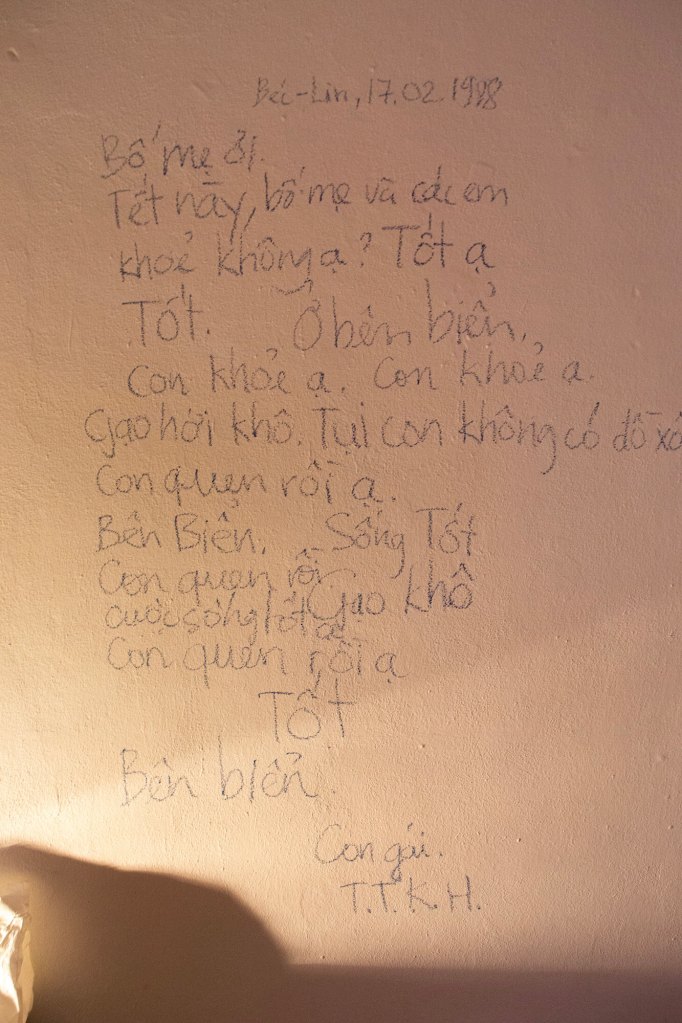 Béc-Lin, 17.02.1988
Bố mẹ ơi.
Tết này, bố mẹ và các em
khoẻ không ạ? Tốt ạ
Tốt. Ở bên biển.
Con khỏe ạ. Con khoẻ ạ.
Gạo hơi khô. Tụi con không có đồ xô
Con quen rồi ạ.
Bên Biển. Sống Tốt
Con quen rồi.
Gạo khô
cuộc sống tốt ạ
Con quen rồi ạ
Tốt
Bên biển.
Con gái.
T.T.K.H.